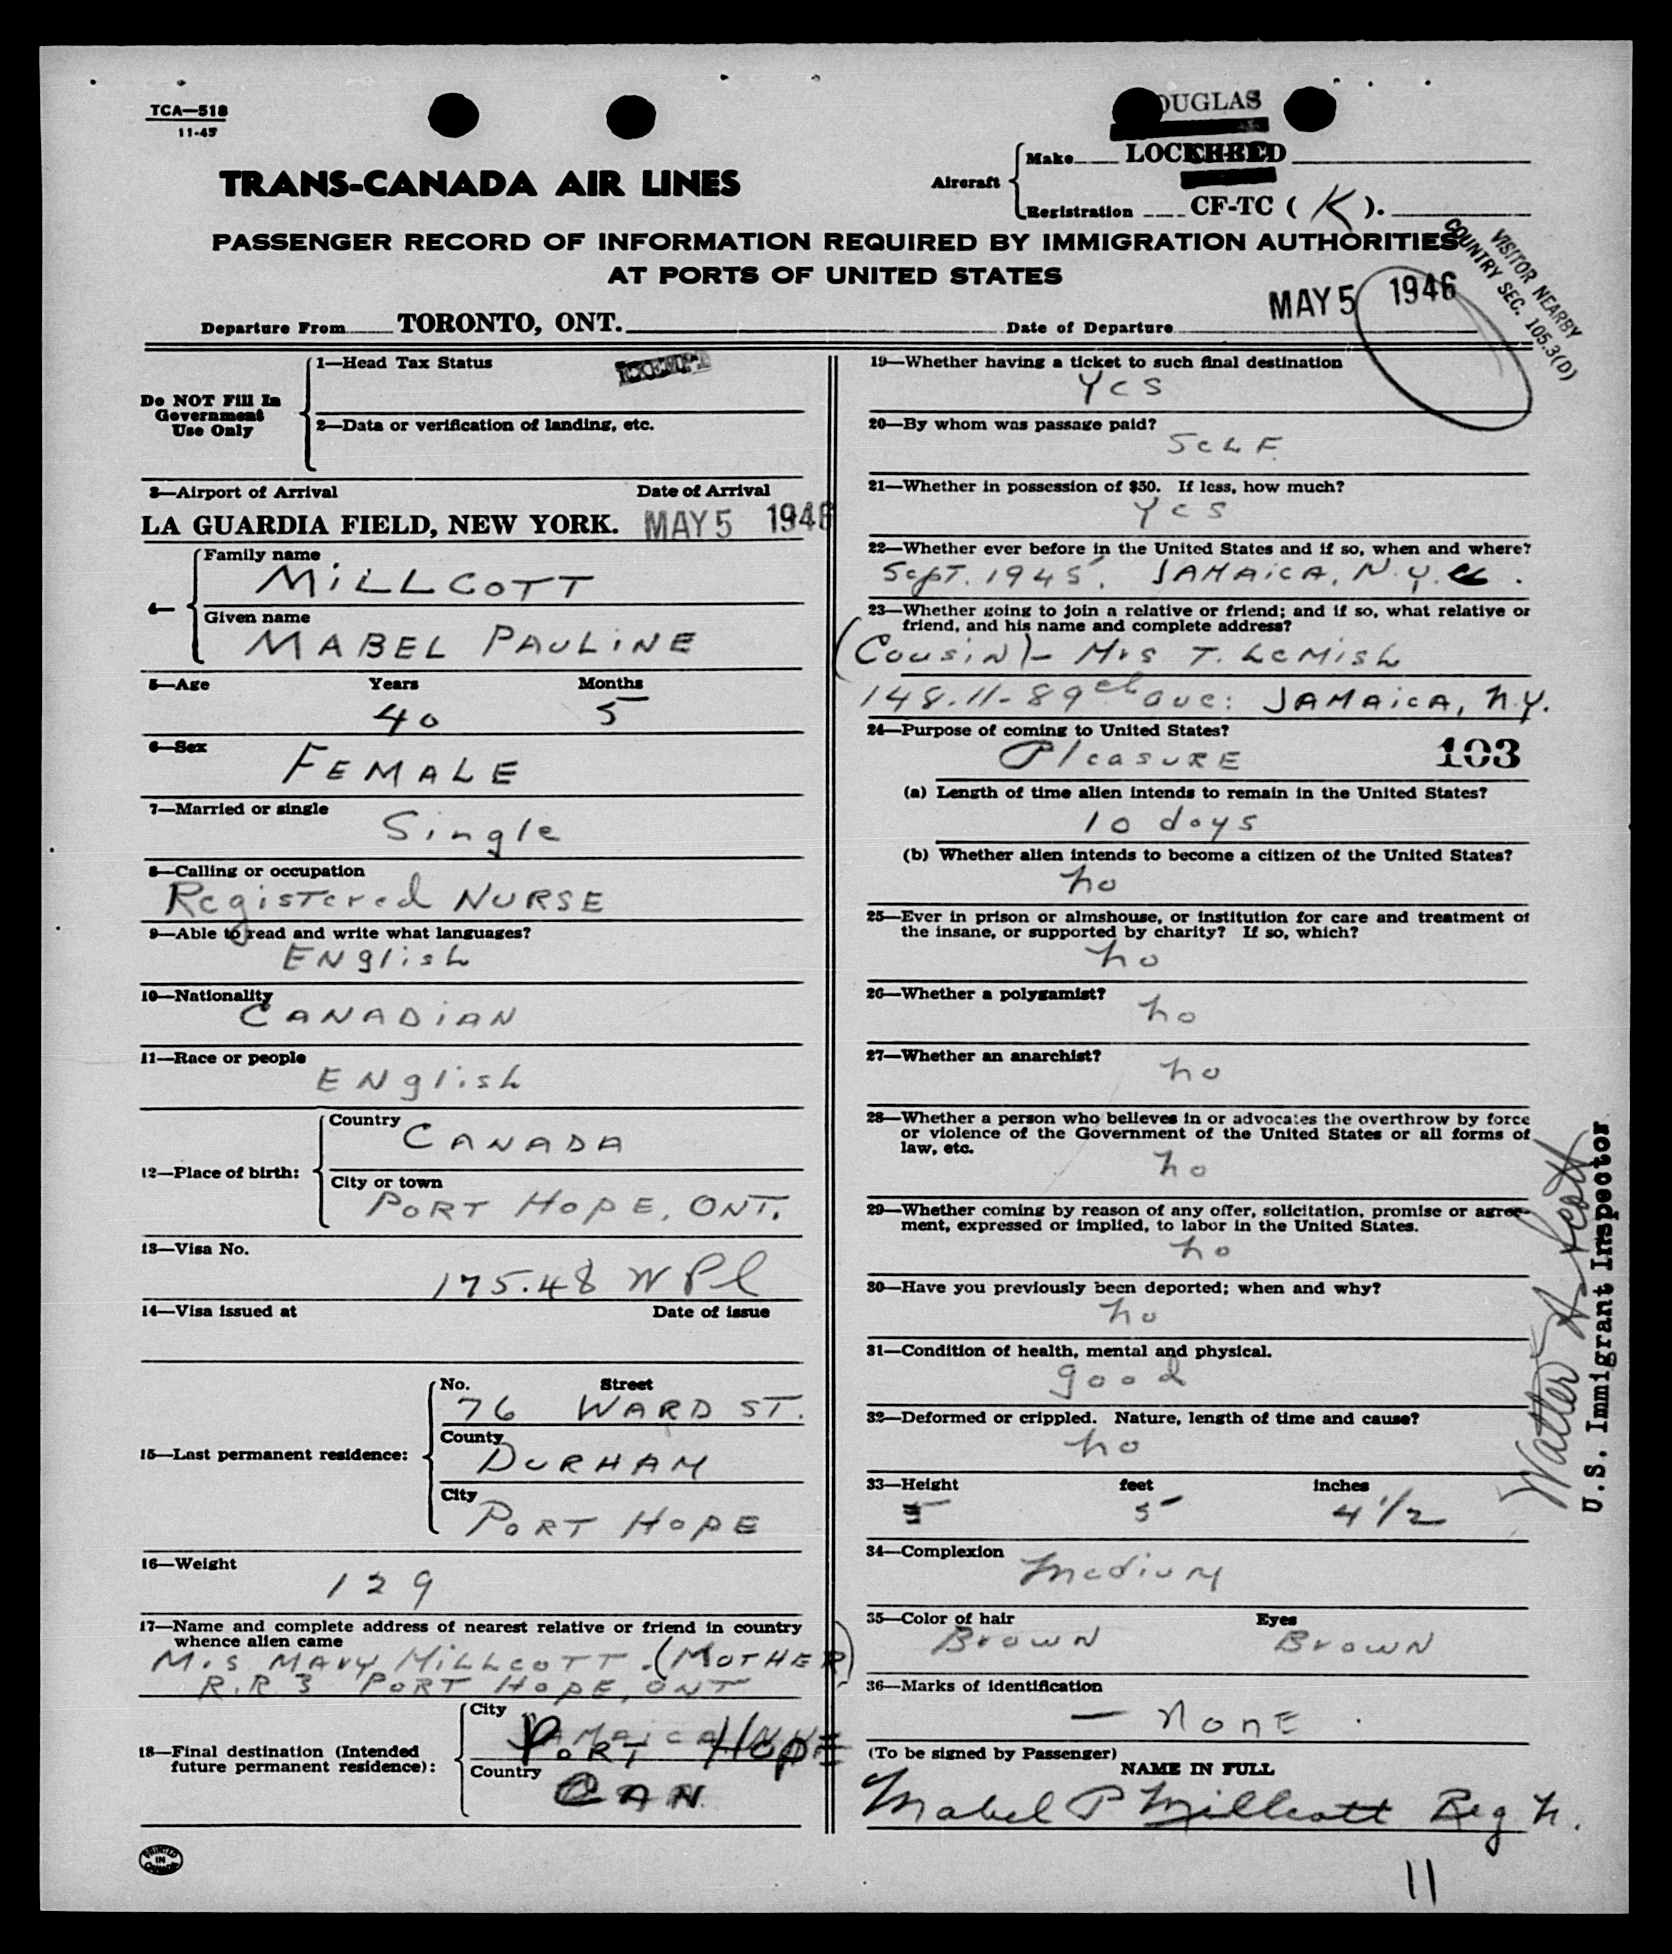 TCA—518
11-45
TRANS-CANADA AIR LINES
DOUGLAS
Aircraft
Make LOCKHEED
Registration CF-TC ( K ).
PASSENGER RECORD OF INFORMATION REQUIRED BY IMMIGRATION AUTHORITIES
AT PORTS OF UNITED STATES
VISITOR NEARBY
COUNTRY SEC. 105.3(D)
Departure From TORONTO, ONT. Date of Departure MAY 5 1946
Do NOT Fill In
Government
Use Only
1—Head Tax Status EXEMPT
2—Data or verification of landing, etc.
3—Airport of Arrival Date of Arrival
LA GUARDIA FIELD, NEW YORK. MAY 5 1946
4—
Family name
MILLCOTT
Given name
MABEL PAULINE
5—Age Years Months
40 5
6—Sex
FEMALE
7—Married or single
Single
8—Calling or occupation
Registered NURSE
9—Able to read and write what languages?
ENglish
10—Nationality
CANADIAN
11—Race or people
ENglish
12—Place of birth:
Country
CANADA
City or town
PORT HOPE, ONT.
13—Visa No.
175.48
14—Visa issued at Date of issue
15—Last permanent residence:
No. Street
76 WARD ST.
County
DURHAM
City
PORT HOPE
16—Weight
129
17—Name and complete address of nearest relative or friend in country
whence alien came
Mrs MARY MILLCOTT. (MOTHER)
R.R 3 PORT HOPE, ONT
18—Final destination (Intended
future permanent residence):
City
PORT HOPE
Country
CAN
PRINTED
IN
CANADA
19—Whether having a ticket to such final destination
Yes
20—By whom was passage paid?
SELF
21—Whether in possession of $50. If less, how much?
Yes
22—Whether ever before in the United States and if so, when and where?
Sept. 1945. JAMAICA, N.Y.
23—Whether going to join a relative or friend; and if so, what relative or
friend, and his name and complete address?
(Cousin) - Mrs T. LeMish
148.11-89th ave: JAMAICA, N.Y.
24—Purpose of coming to United States?
PleasURE 103
(a) Length of time alien intends to remain in the United States?
10 days
(b) Whether alien intends to become a citizen of the United States?
no
25—Ever in prison or almshouse, or institution for care and treatment of
the insane, or supported by charity? If so, which?
no
26—Whether a polygamist?
no
27—Whether an anarchist?
no
28—Whether a person who believes in or advocates the overthrow by force
or violence of the Government of the United States or all forms of
law, etc.
no
29—Whether coming by reason of any offer, solicitation, promise or agree-
ment, expressed or implied, to labor in the United States.
no
30—Have you previously been deported; when and why?
no
31—Condition of health, mental and physical.
good
32—Deformed or crippled. Nature, length of time and cause?
no
33—Height feet inches
5 4 1/2
34—Complexion
Medium
35—Color of hair Eyes
Brown Brown
36—Marks of identification
— NONE .
(To be signed by Passenger)
NAME IN FULL
Mabel P Millcott Reg N.
11
Walter A Scott
U.S. Immigrant Inspector